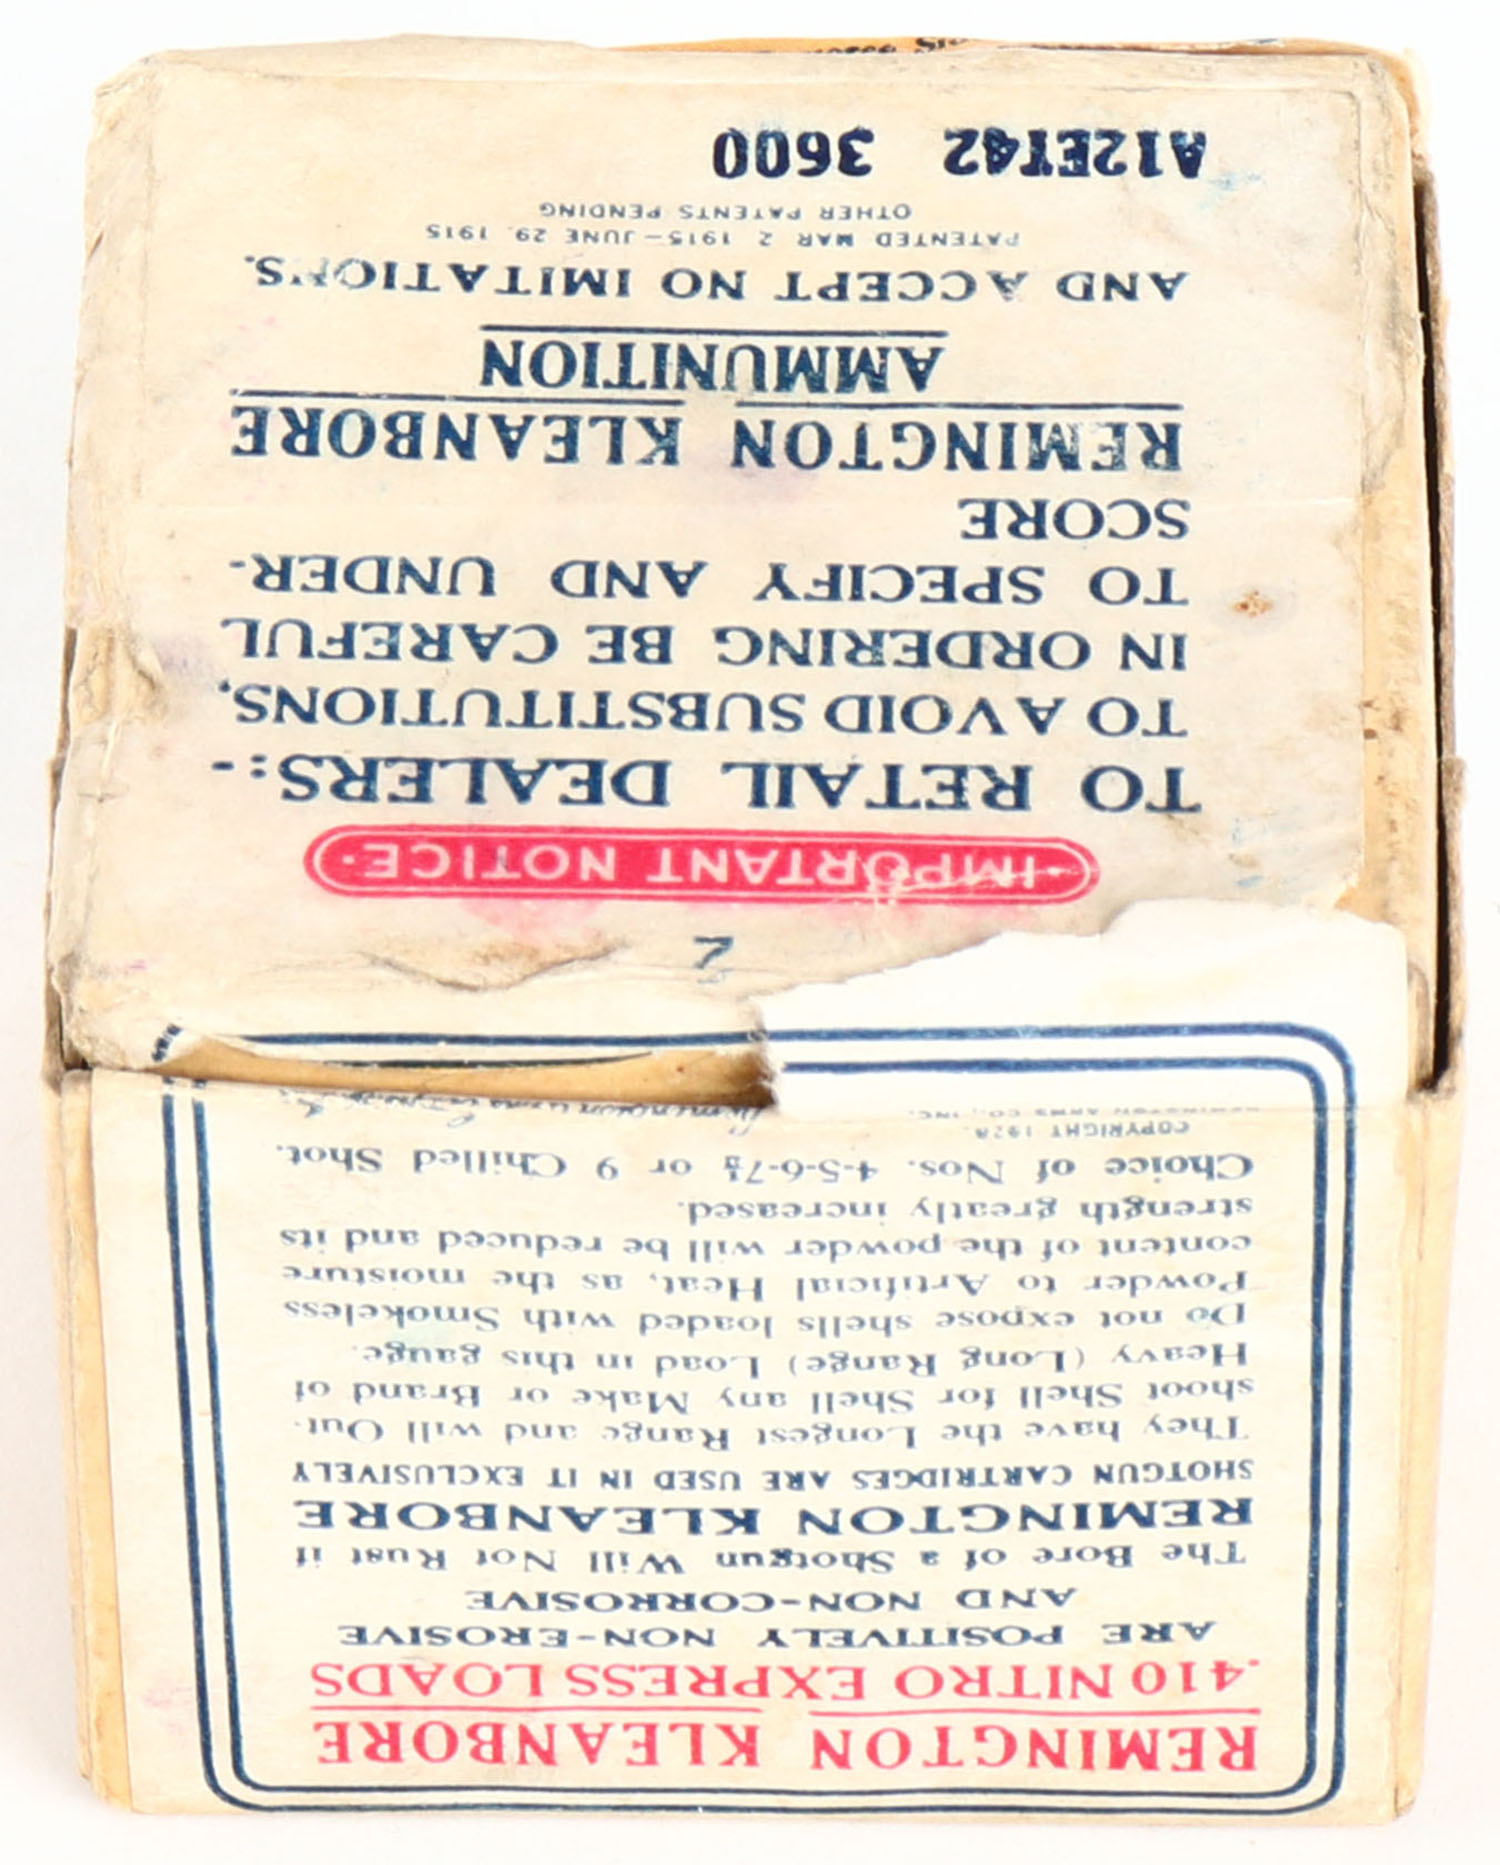 REMINGTON KLEANBORE
.410 NITRO EXPRESS LOADS
ARE POSITIVELY NON-EROSIVE
AND NON-CORROSIVE
The Bore of a Shotgun Will Not Rust if
REMINGTON KLEANBORE
SHOTGUN CARTRIDGES ARE USED IN IT EXCLUSIVELY
They have the Longest Range and will Out-
shoot Shell for Shell any Make or Brand of
Heavy (Long Range) Load in this gauge.
Do not expose shells loaded with Smokeless
Powder to Artificial Heat, as the moisture
content of the powder will be reduced and its
strength greatly increased.
Choice of Nos. 4-5-6-7½ or 9 Chilled Shot.
COPYRIGHT 1928.
REMINGTON ARMS CO., INC.
2
·IMPORTANT NOTICE·
TO RETAIL DEALERS:-
TO AVOID SUBSTITUTIONS,
IN ORDERING BE CAREFUL
TO SPECIFY AND UNDER-
SCORE
REMINGTON KLEANBORE
AMMUNITION
AND ACCEPT NO IMITATIONS.
PATENTED MAR 2 1915-JUNE 29. 1915
OTHER PATENTS PENDING
A12ET42 3600